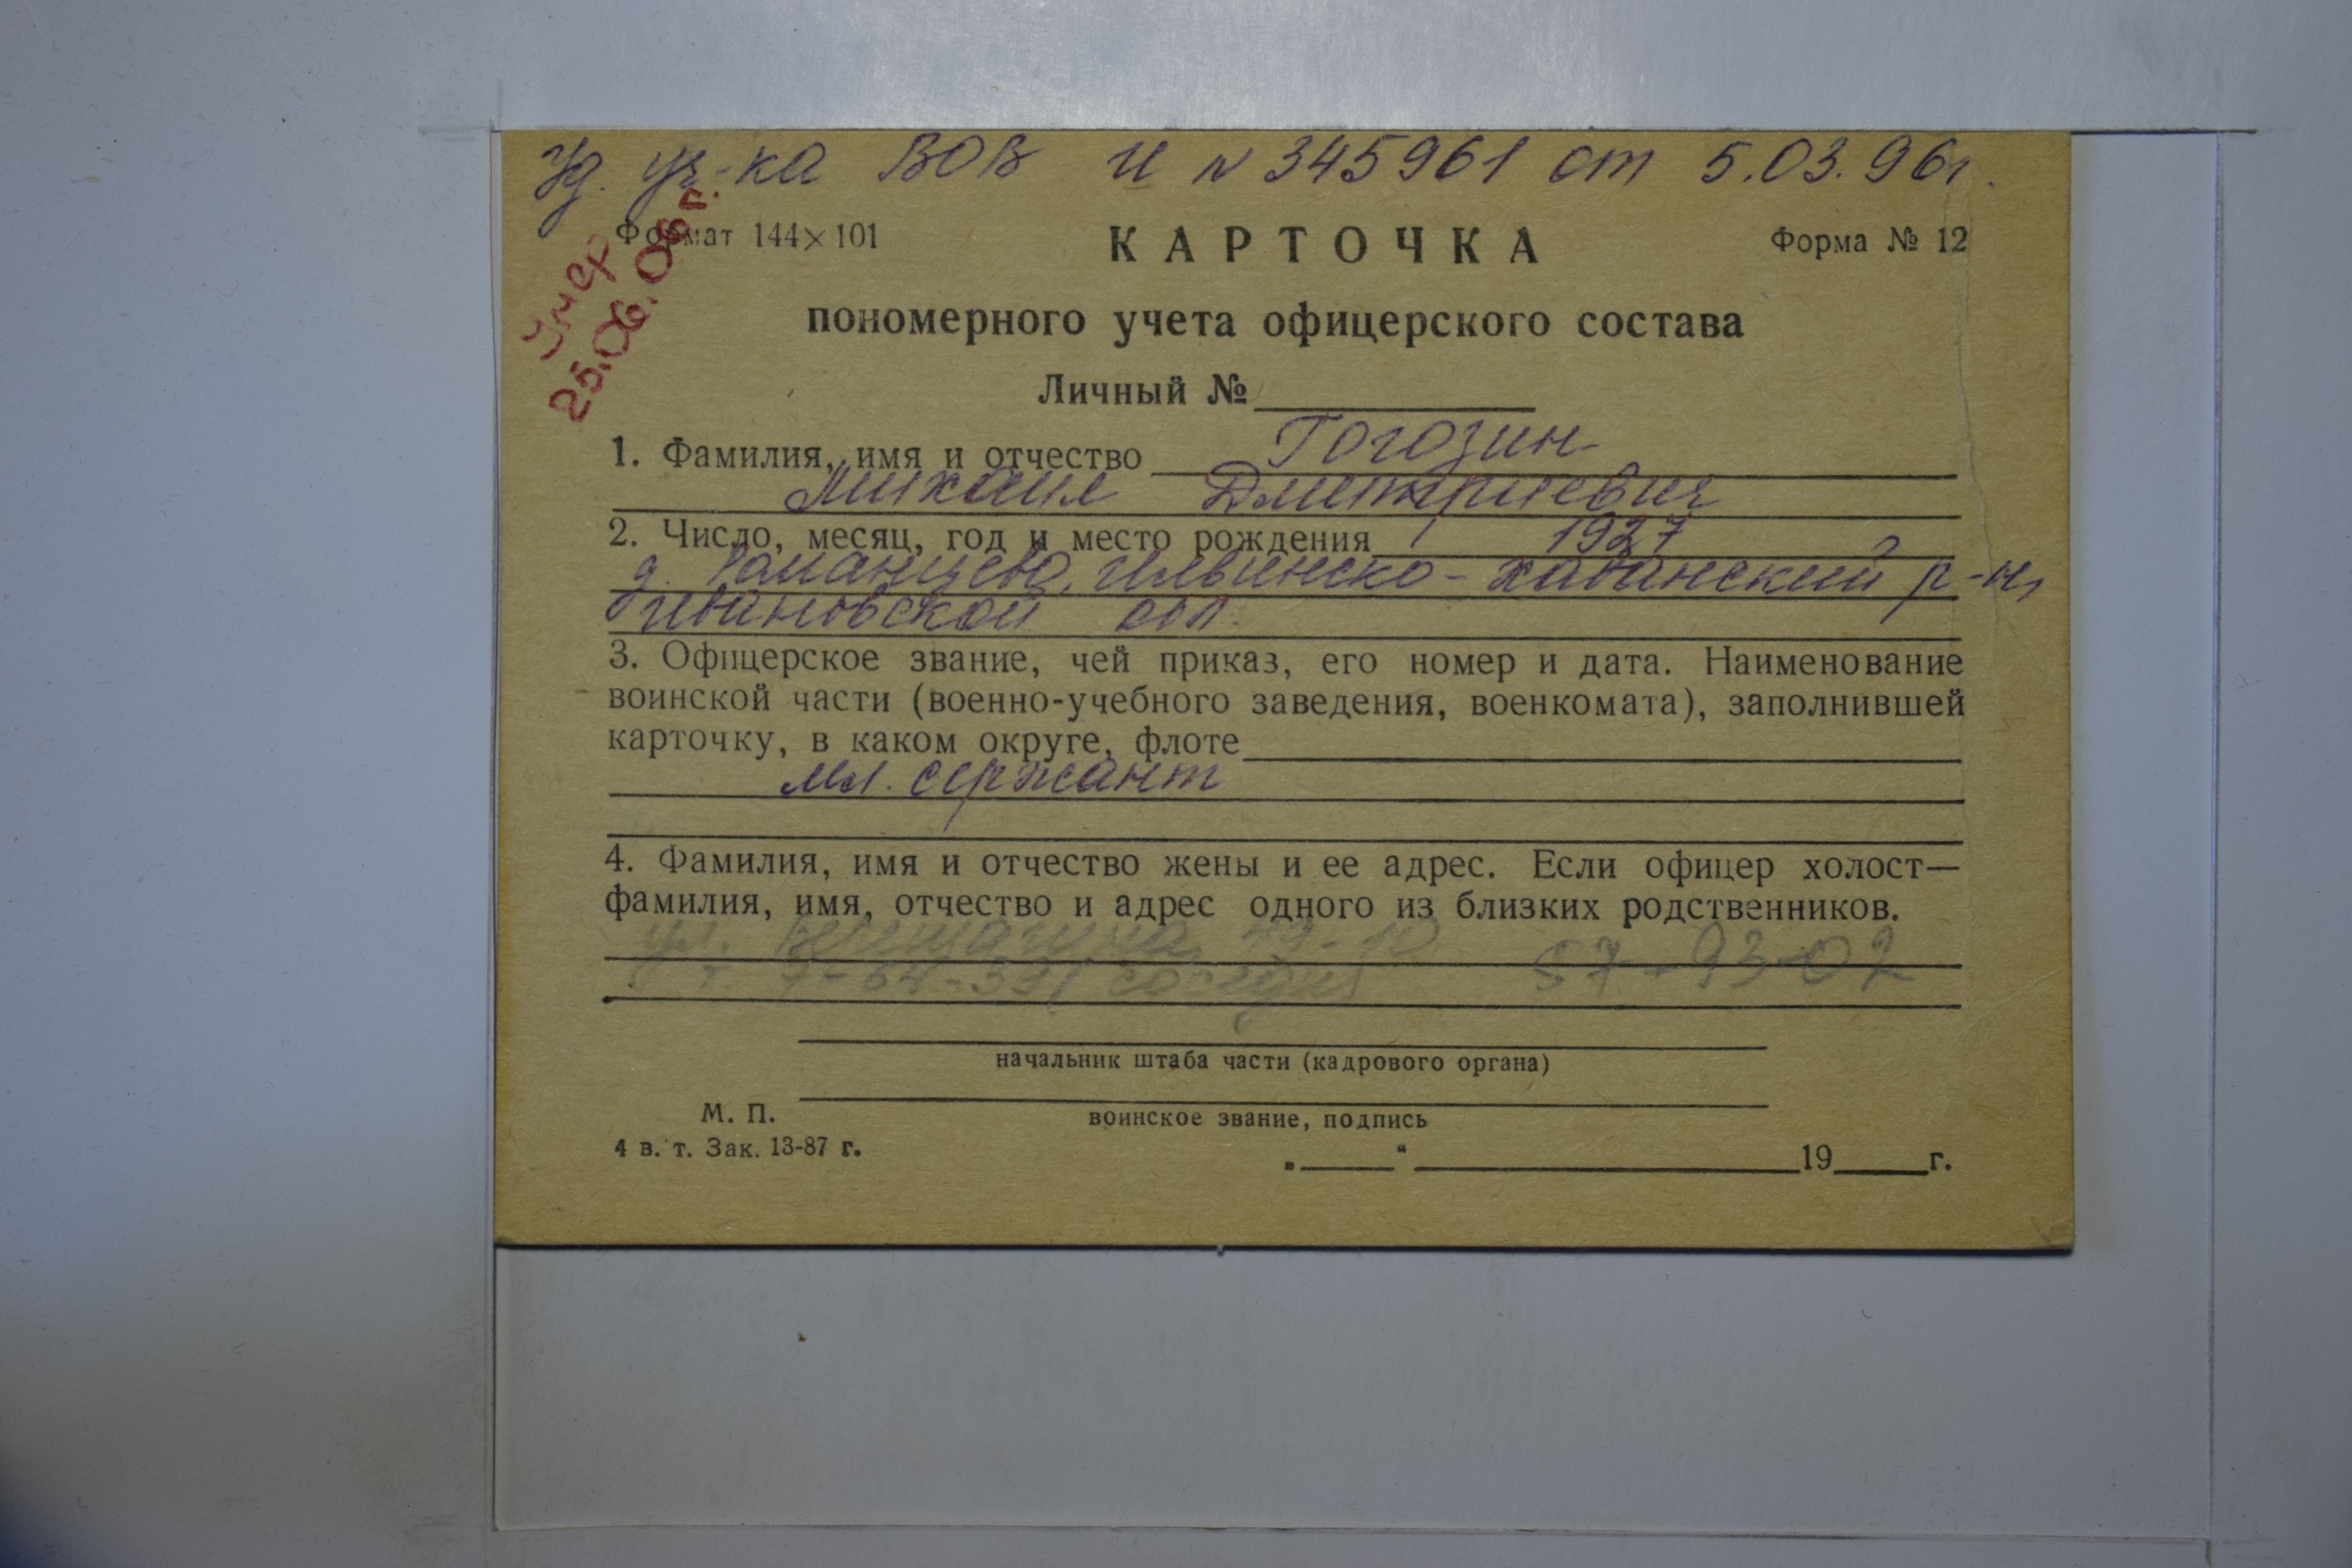 Уд. уч-ка ВОВ И № 345961 от 5.03.96г.
Умер
25.06.05г.
Формат 144×101
КАРТОЧКА
Форма № 12
пономерного учета офицерского состава
Личный №
1. Фамилия, имя и отчество Гогозин
Михаил Дмитриевич
2. Число, месяц, год и место рождения 1927
д. Романцево, Ильинско-Хованский р-н,
Ивановской обл.
3. Офицерское звание, чей приказ, его номер и дата. Наименование
воинской части (военно-учебного заведения, военкомата), заполнившей
карточку, в каком округе, флоте
мл. сержант
4. Фамилия, имя и отчество жены и ее адрес. Если офицер холост—
фамилия, имя, отчество и адрес одного из близких родственников.
ул. 49-10 57-93-02
т. 7-64-39 (соседи)
начальник штаба части (кадрового органа)
М. П.
воинское звание, подпись
4 в. т. Зак. 13-87 г.
„ “ 19 г.